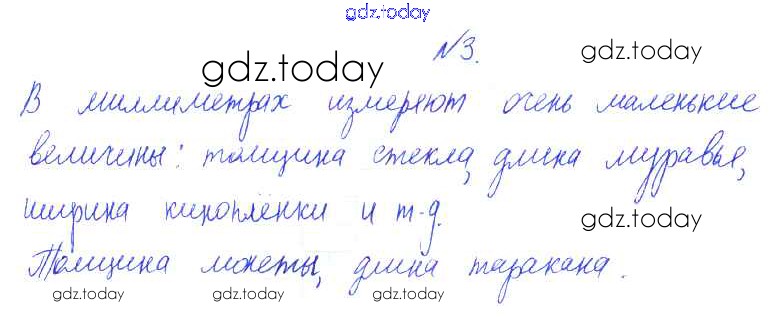 gdz.today
№3.
gdz.today
gdz.today
В миллиметрах измеряют очень маленькие
величины: толщина стекла, длина муравья,
ширина киноплёнки и т.д.
gdz.today
Толщина монеты, длина таракана.
gdz.today gdz.today gdz.today gdz.today